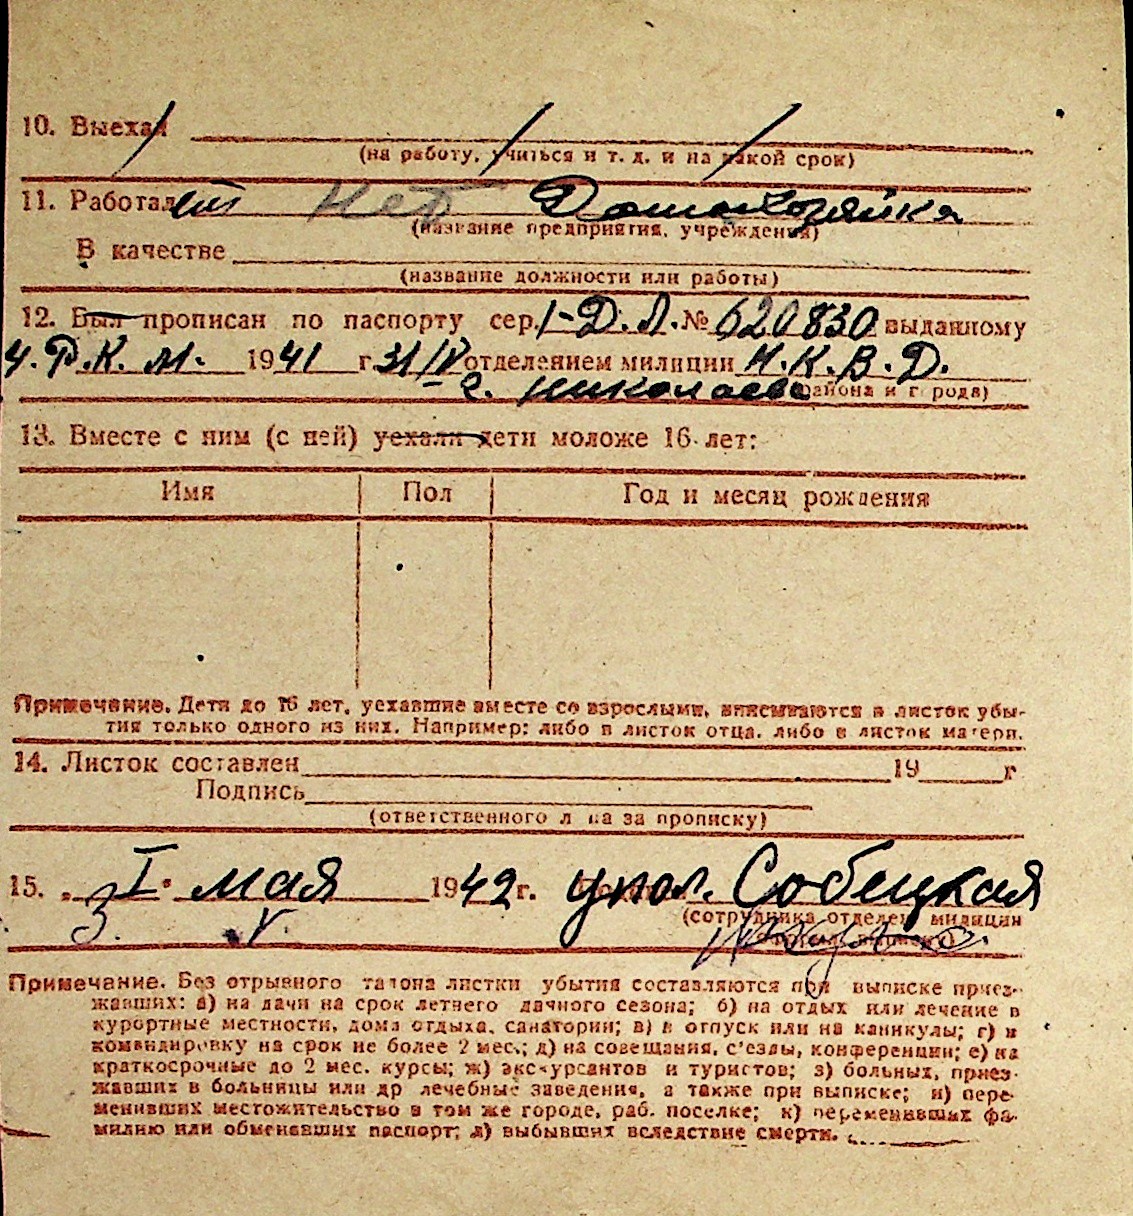 10. Выехал
(на работу, учиться и т. д. и на какой срок)
11. Работает нет Домохозяйка
(название предприятия, учреждения)
В качестве
(название должности или работы)
12. Был прописан по паспорту сер. 1-Д.Л. № 620830 выданному
4. Р.К.М. 1941 г. 31/IV отделением милиции Н.К.В.Д.
г. Николаева района и города)
13. Вместе с ним (с ней) уехали дети моложе 16 лет:
Имя Пол Год и месяц рождения
Примечание. Дети до 16 лет, уехавшие вместе со взрослыми, вписываются в листок убы-
тия только одного из них. Например: либо в листок отца, либо в листок матери.
14. Листок составлен 19 г
Подпись
(ответственного лица за прописку)
15. „ I " мая 1942 г. упол. Собецкая
(сотрудника отделен. милиции
3. V.
Примечание. Без отрывного талона листки убытия составляются при выписке приез-
жавших: а) на дачи на срок летнего дачного сезона; б) на отдых или лечение в
курортные местности, дома отдыха, санатории; в) в отпуск или на каникулы; г) в
командировку на срок не более 2 мес.; д) на совещания, с'езды, конференции; е) на
краткосрочные до 2 мес. курсы; ж) экскурсантов и туристов; з) больных, приез-
жавших в больницы или др лечебные заведения, а также при выписке; и) пере-
менивших местожительство в том же городе, раб. поселке; к) переменивших фа-
милию или обменявших паспорт; л) выбывших вследствие смерти.